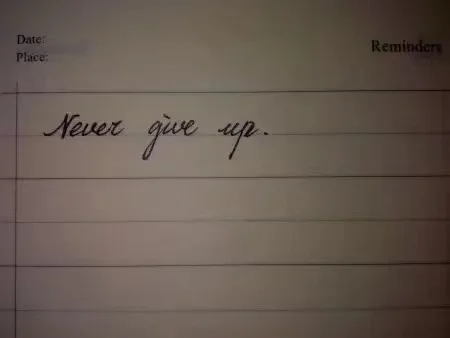 Date:
Place:
Reminders
Never give up.